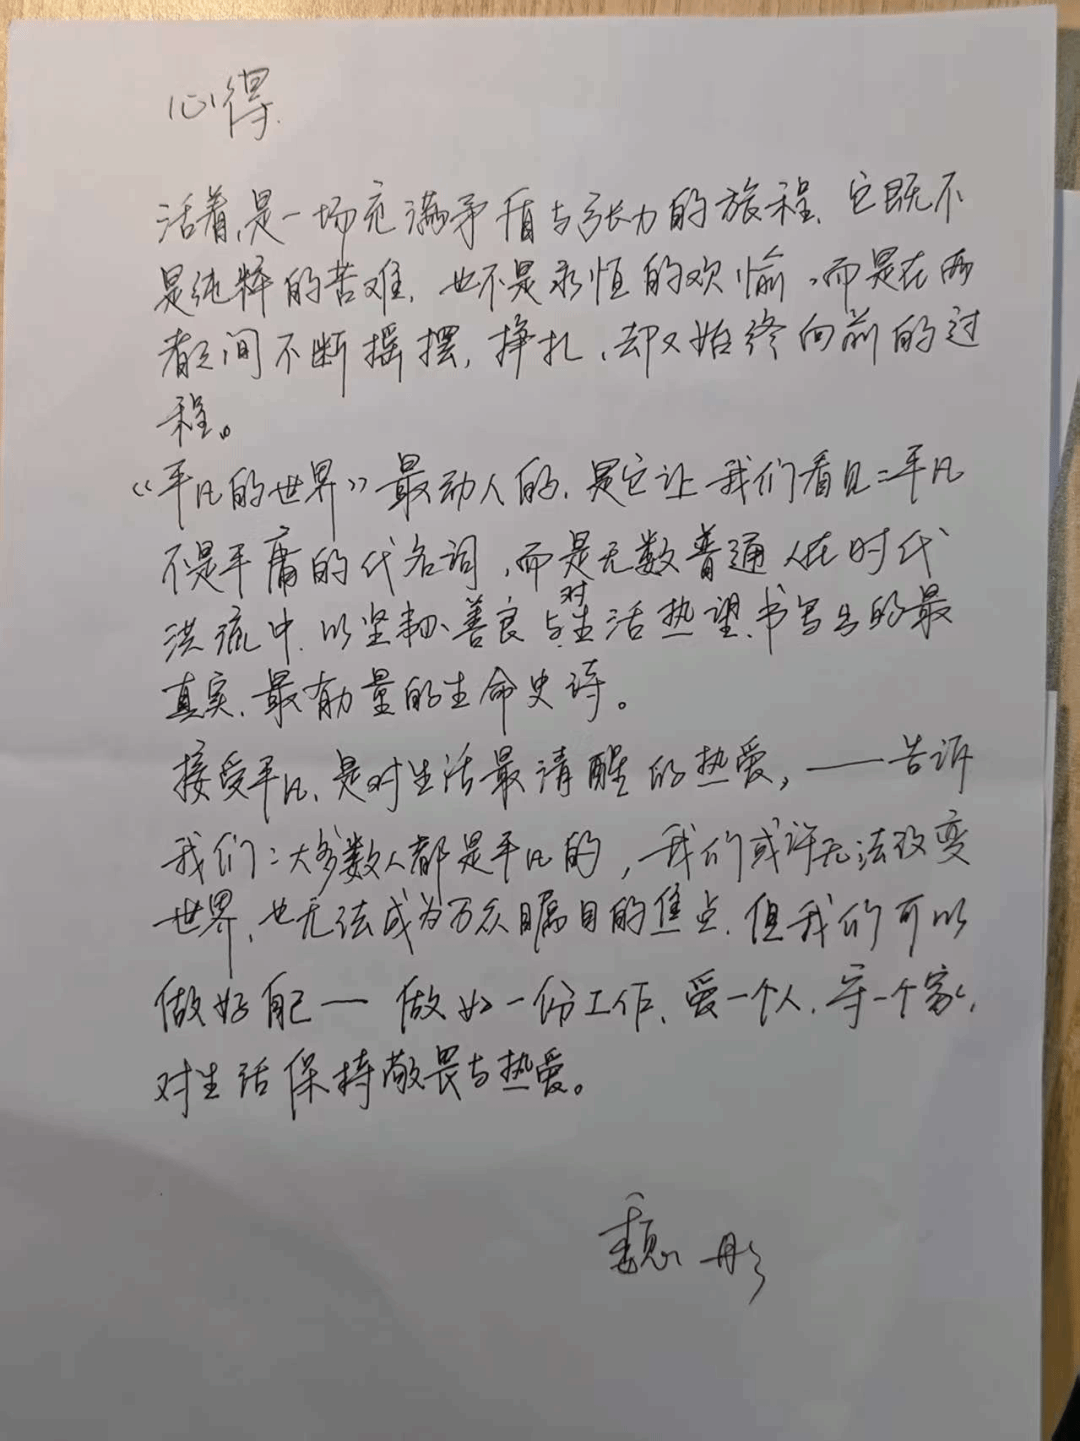 心得.
活着,是一场充满矛盾与张力的旅程、它既不
是纯粹的苦难,也不是永恒的欢愉、而是在两
者之间不断摇摆,挣扎、却又始终向前的过
程。
《平凡的世界》最动人的,是它让我们看见:平凡
不是平庸的代名词,而是无数普通人在时代
洪流中,以坚韧、善良与对生活热望、书写出的最
真实、最有力量的生命史诗。
接受平凡、是对生活最清醒的热爱,——告诉
我们:大多数人都是平凡的,我们或许无法改变
世界、也无法成为万众瞩目的焦点,但我们可以
做好自己——做好一份工作、爱一个人,守一个家,
对生活保持敬畏与热爱。
彤